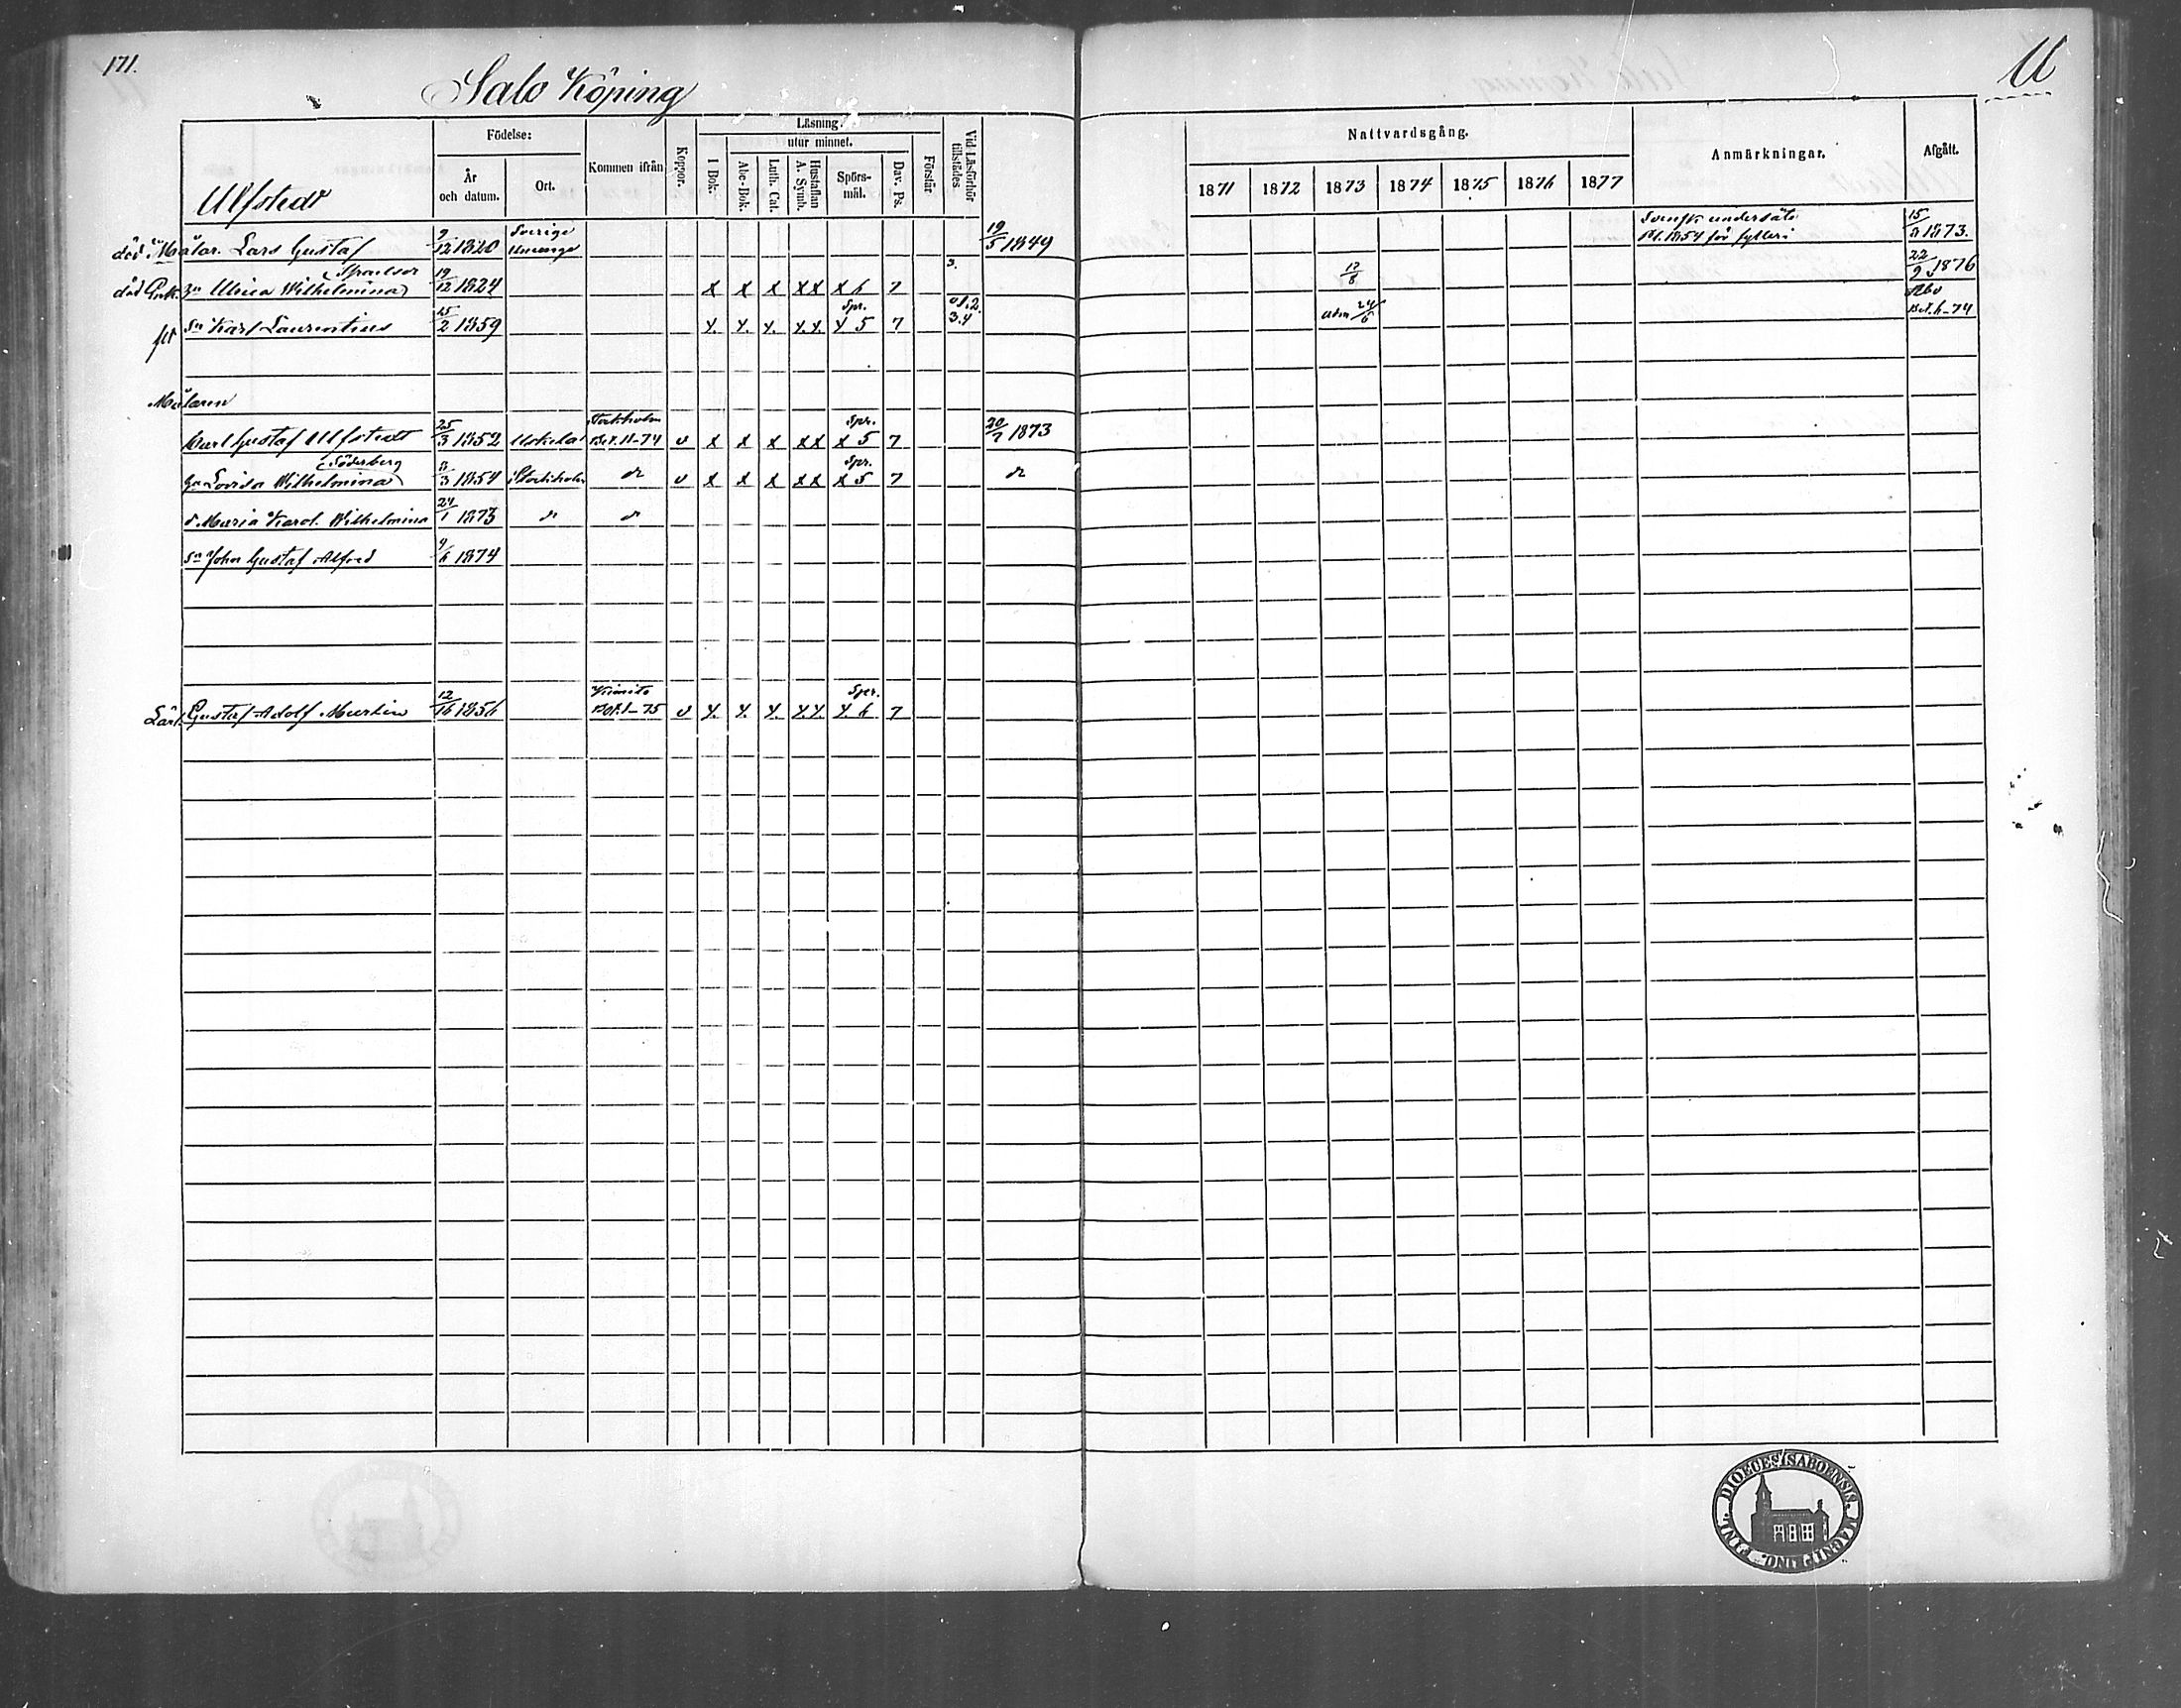 171.
Salo Köping
U
Födelse:
År och datum.
Ort.
Kommen ifrån
Koppor.
Läsning.
I Bok.
utur minnet.
Abc-Bok.
Luth. Cat.
Hustaflan A. Symb.
Spörs-mål.
Dav. Ps.
Förstår
Vid Läsförhör tillstädes
Nattvardsgång.
1871 1872 1873 1874 1875 1876 1877
Anmärkningar.
Afgått.
Ulfstedt
död Målar. Lars Gustaf 9/12 1820 Sverige 19/5 1849 Svensk undersåte Pl. 1854 för fylleri 15/8 1873.
död Enk. Ulrica Wilhelmina 19/12 1824 x x x xx x 6 7 3. 17/8 22/9 1876
flt sn Karl Laurentius 15/2 1859 x. x. x. x.x. Spr. x 5 7 01.2. 3.4 adm 24/6 Åbo Bet. 6-74
Målaren
Karl Gustaf Ulfstedt 25/3 1852 Uskela Stockholm Bet. 11-74 v x x x xx Spr. x 5 7 20/7 1873
hu Lovisa Wilhelmina (Söderberg) 8/3 1854 Stockholm do v x x x xx Spr. x 5 7 do
d Maria Karol. Wilhelmina 24/1 1873 do do
sn John Gustaf Alfred 9/6 1874
Lärl. Gustaf Adolf Martin 1856 Kimito Bet. 1-75 v x. x. x. x.x. Spr. x. 6 7
DIOECESIS ABOENSIS MAGNI DUC. FINL.